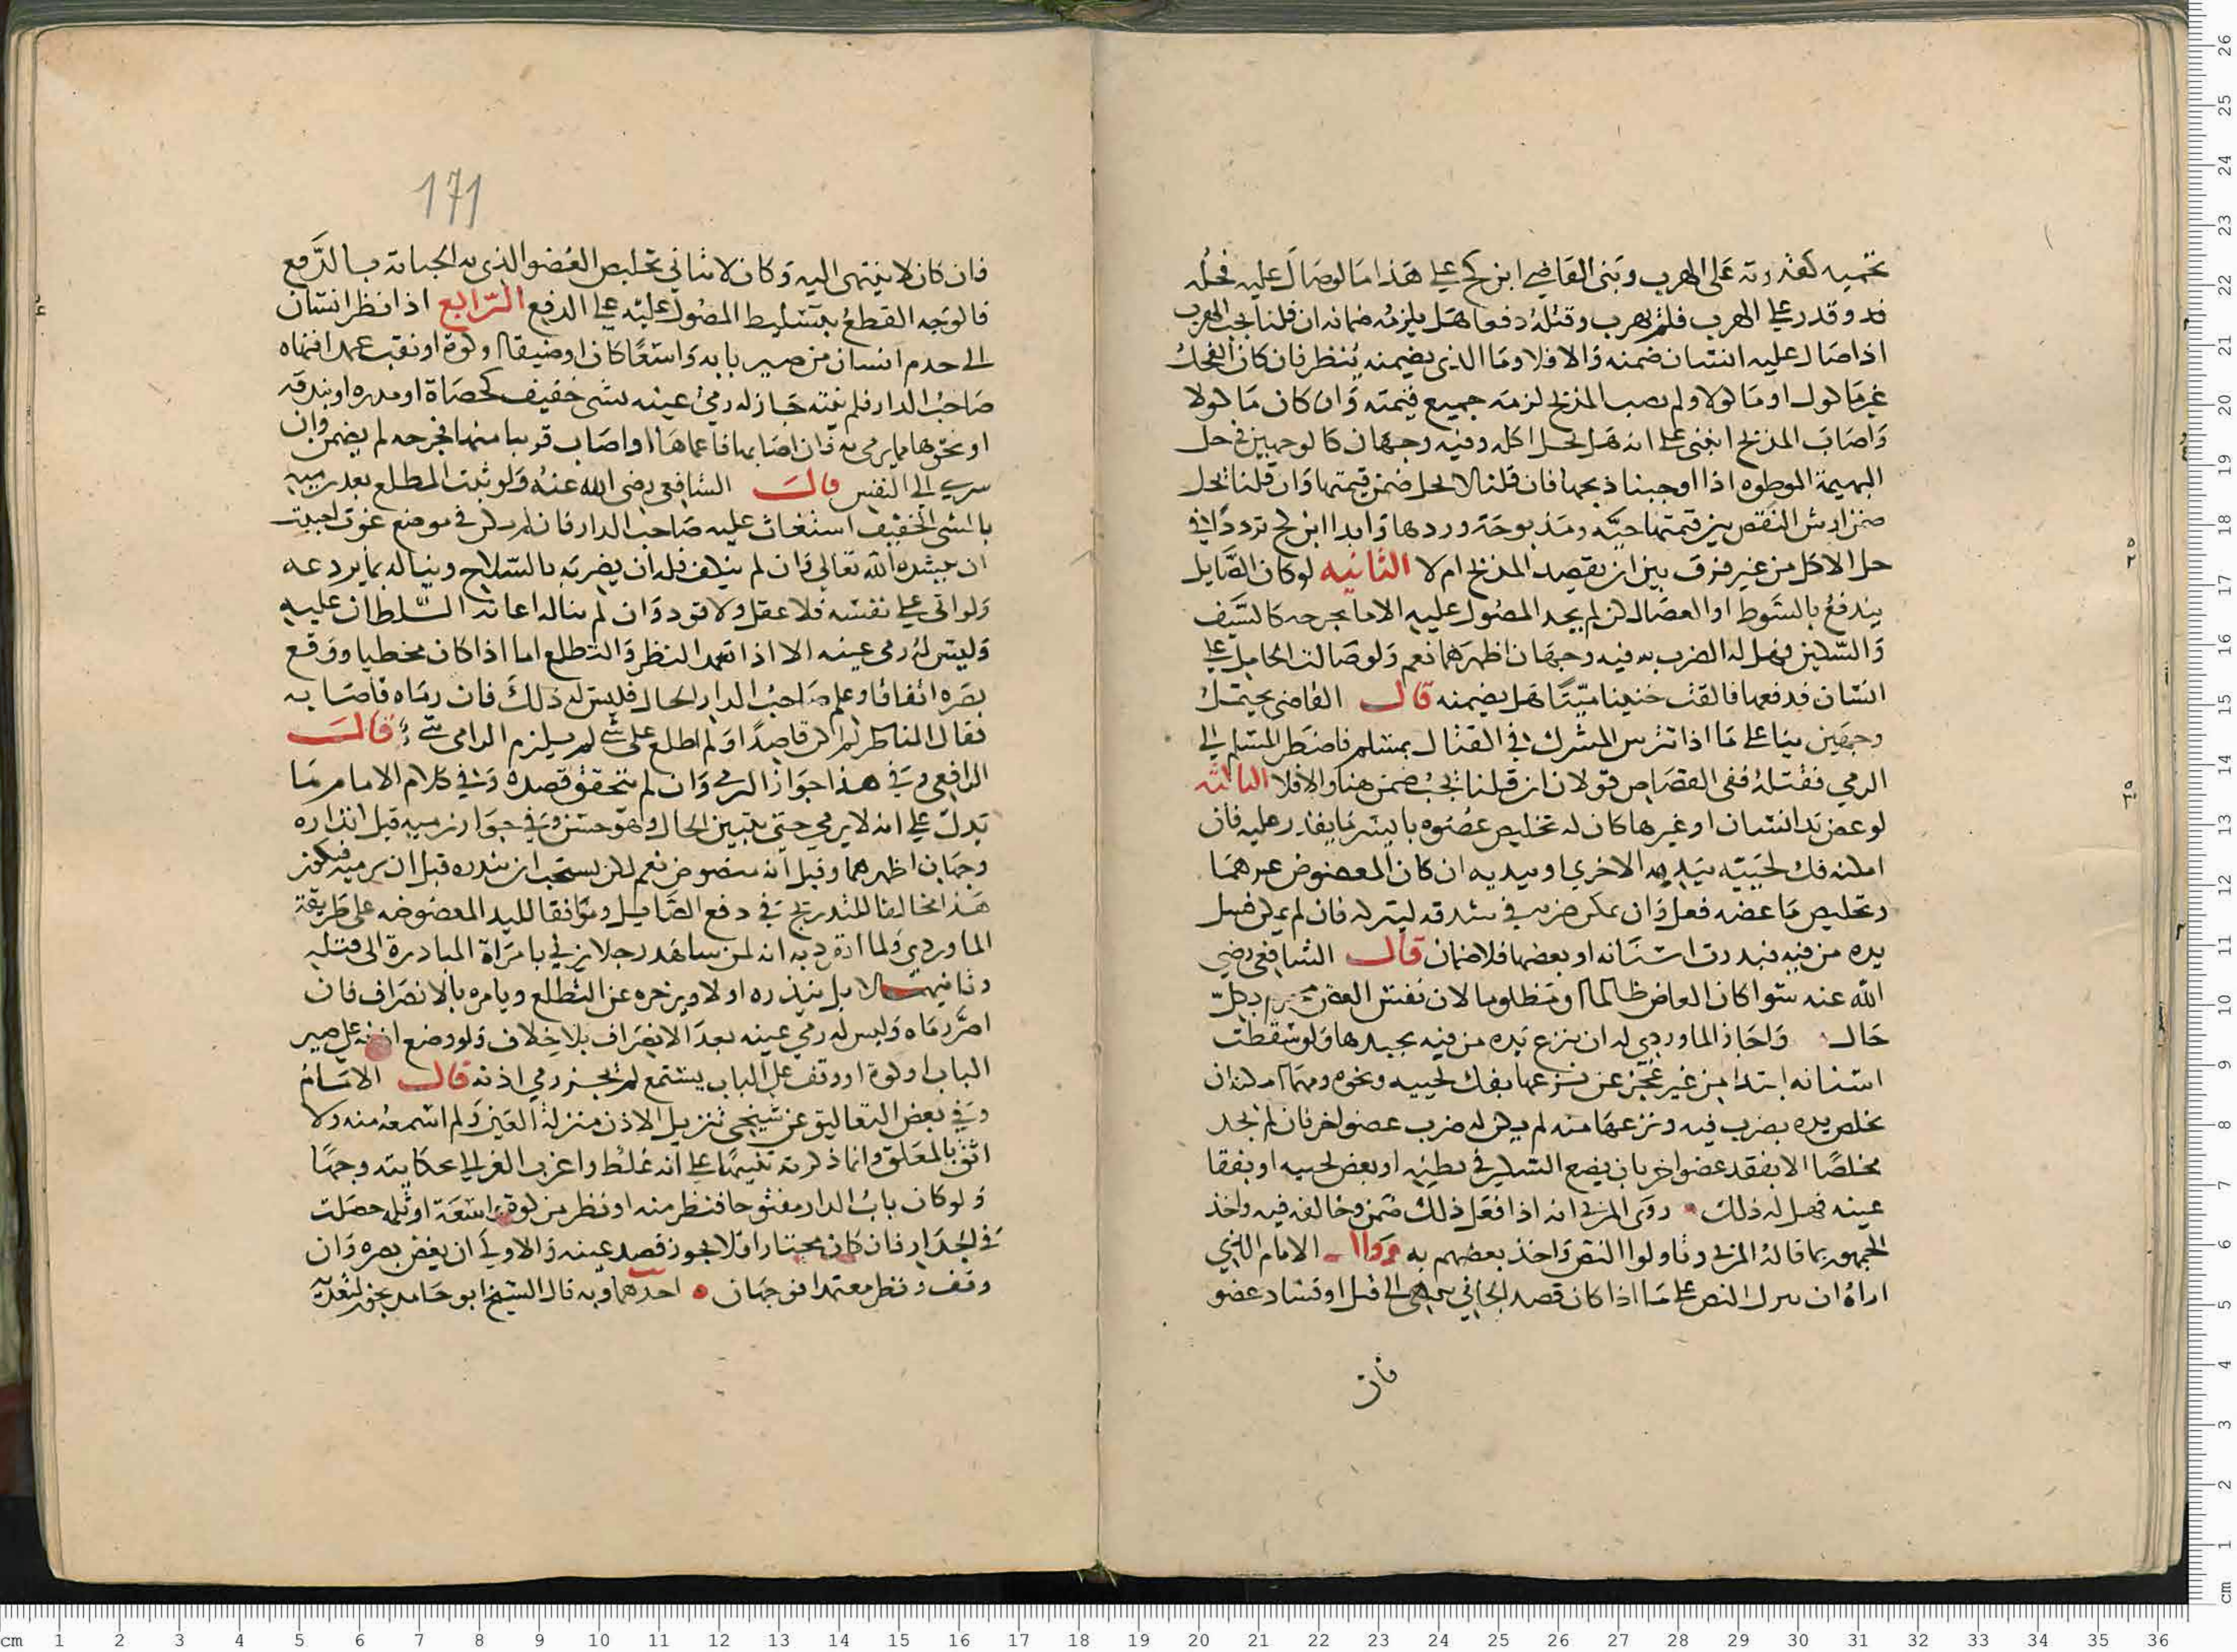 تحميه كقدرته على الهرب وبنى القاضي ابن كج على هذا ما لو صال عليه فحل
فد وقدر على الهرب فلم يهرب وقتله دفعا هل يلزمه ضمانه ان قلنا يجب الهرب
اذا صال عليه انسان ضمنه والا فلا وما الذي يضمنه ينظر فان كان الفحل
غير ماكول او ماكولا ولم يصب المذبح لزمه جميع قيمته وان كان ماكولا
واصاب المذبح انبنى على انه هل يحل اكله وفيه وجهان كالوجهين في حل
البهيمة الموطوه اذا اوجبنا ذبحها فان قلنا لا يحل ضمن قيمتها وان قلنا يحل
ضمن ارش النقص بين قيمتها حيّه ومذبوحة وردها وابدا ابن كج ترددا في
حل الاكل من غير فرق بين ان يقصد المذبح ام لا الثانيه لو كان الصايل
يندفع بالسوط او العصا لكن لم يجد المصول عليه الا ما يجرحه كالسيف
والسكين فهل له الضرب به فيه وجهان اظهرهما نعم ولو صالت الحامل على
انسان فدفعها فالقت جنينا ميتا هل يضمنه قال القاضي يحتمل
وجهين بنا على ما اذا تترس المشرك في القتال بمسلم فاضطر المسلم الى
الرمي فقتله ففي القصاص قولان ان قلنا يجب ضمن هنا والا فلا الثالثه
لو عض يد انسان او غيرها كان له تخليص عضوه بايسر ما يقدر عليه فان
امكنه فك لحييه بيديه الاخري او بيديه ان كان المعضوض غيرهما
وتخليص ما عضه فعل وان يمكن ضربه في شدقه ليتركه فان لم يمكن فسل
يده من فيه فبدرت اسنانه او بعضها فلا ضمان قال الشافعي رضي
الله عنه سوا كان العاض ظالما او مظلوما لان نفس العض محرم بكل
حال واجاز الماوردي له ان ينزع يده من فيه بجبدها ولو سقطت
اسنانه ابتدا من غير عجز عن نزعها بفك لحييه ونحوه ومهما امكنه ان
يخلص يده بضرب فيه ونزعها منه لم يكن له ضرب عضو اخر فان لم يجد
مخلصا الا بفقد عضو اخر بان يضع السكين في بطنه او بعض لحييه او يفقا
عينه فهل له ذلك روى المزني انه اذا فعل ذلك ضمن وخالفه فيه واخذ
الجمهور بما قاله المزني وتاولوا النص واخذ بعضهم به قال الامام الذي
اراه ان ينزل النص على ما اذا كان قصد الجاني ينتهي الى قتل او فساد عضو
فان
171
فان كان لا ينتهي اليه وكان لا يتاتي تخليص العضو الذي به الجناية بالدفع
فالوجه القطع بتسليط المصول عليه على الدفع الرابع اذا نظر انسان
الى حرم انسان من صير بابه واسعا كان او ضيقا او كوة او نقب عمدا فنهاه
صاحب الدار فلم ينته جاز له رمي عينه بشي خفيف كحصاة او مدره او بندقه
او نحوها مما يرمى به فان اصابها فاعماها او اصاب قريبا منها فجرحه لم يضمن وان
سرى الى النفس قال الشافعي رضي الله عنه ولو ثبت المطلع بعد رميه
بالشي الخفيف استغاث عليه صاحب الدار فان لم يكن في موضع غوث احببت
ان ينشده الله تعالى فان لم ينكف فله ان يضربه بالسلاح ويناله بما يردعه
ولو اتي على نفسه فلا عقل ولا قود وان لم يناله اعانه السلطان عليه
وليس له رمي عينه الا اذا تعمد النظر والتطلع اما اذا كان مخطيا ووقع
بصره اتفاقا وعلم صاحب الدار الحال فليس له ذلك فان رماه فاصابه
فقال الناظر لم اكن قاصدا او لم اطلع على شي لم يلزم الرامي شي قال
الرافعي وفي هذا جواز الرمي وان لم يتحقق قصده وفي كلام الامام ما
يدل على انه لا يرمي حتى يتبين الحال وهو حسن وفي جواز رميه قبل انذاره
وجهان اظهرهما وقيل انه منصوص نعم لكن يستحب ان ينذره قبل ان يرميه فيكون
هذا مخالفا للتدريج في دفع الصايل وموافقا لليد المعضوضه على طريقة
الماوردي ولما انفرد به انه لمن شاهد رجلا يزني بامراة المبادرة الى قتله
وثانيهما لا بل ينذره اولا ويزجره عن التطلع ويامره بالانصراف فان
اصر رماه وليس له رمي عينه بعد الانصراف بلا خلاف ولو وضع اذنه على صير
الباب او كوة او وقف على الباب يستمع لم يجز رمي اذنه قال الامام
وفي بعض التعاليق عن شيخي تنزيل الاذن منزلة العين ولم اسمعه منه ولا
اثق بالمعلق وانما ذكرته تنبيها على انه غلط واغرب الغزالي بحكايته وجها
ولو كان باب الدار مفتوحا فنظر منه او نظر من كوة واسعة او ثلمه حصلت
في الجدار فان كان مجتازا فلا يجوز قصد عينه والاولى ان يغض بصره وان
وقف ونظر معتمدا فوجهان احدهما وبه قال الشيخ ابو حامد يجوز لتعديه